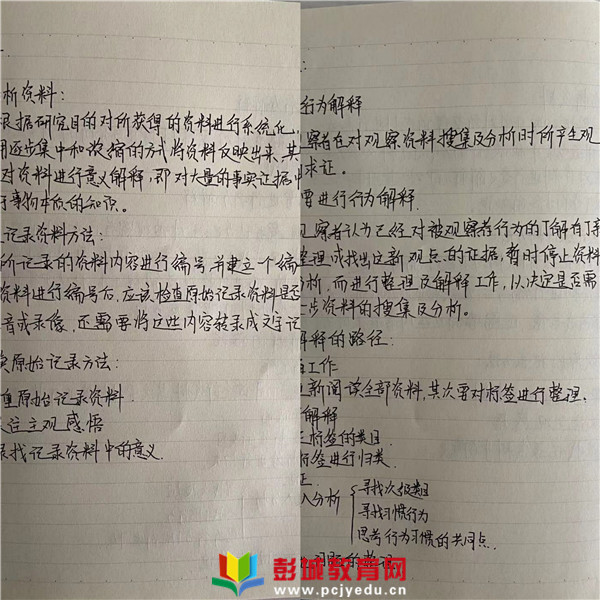 析资料：
根据研究目的对所获得的资料进行系统化、
用逐步集中和浓缩的方式将资料反映出来，其
对资料进行意义解释，即对大量的事实证据中
于事物本质的知识。
记录资料方法：
所记录的资料内容进行编号，并建立个编
资料进行编号后，应该检查原始记录资料是否
音或录像，还需要将这些内容转录成文字记
原始记录方法：
重原始记录资料
注主观感悟
寻找记录资料中的意义
：
行为解释
察者在对观察资料搜集及分析时所产生观
求证。
要进行行为解释
观察者认为已经对被观察者行为的了解有了
整理或找出立新观点的证据，暂时停止资料
析，而进行整理及解释工作，以决定是否需
步资料的搜集及分析。
解释的路径：
工作
重新阅读全部资料，其次要对标签进行整理、
解释
标签的类目
标签进行归类
证
入分析
寻找次级类目
寻找习惯行为
思考行为习惯的共同点
彭城教育网
www.pcjyedu.cn